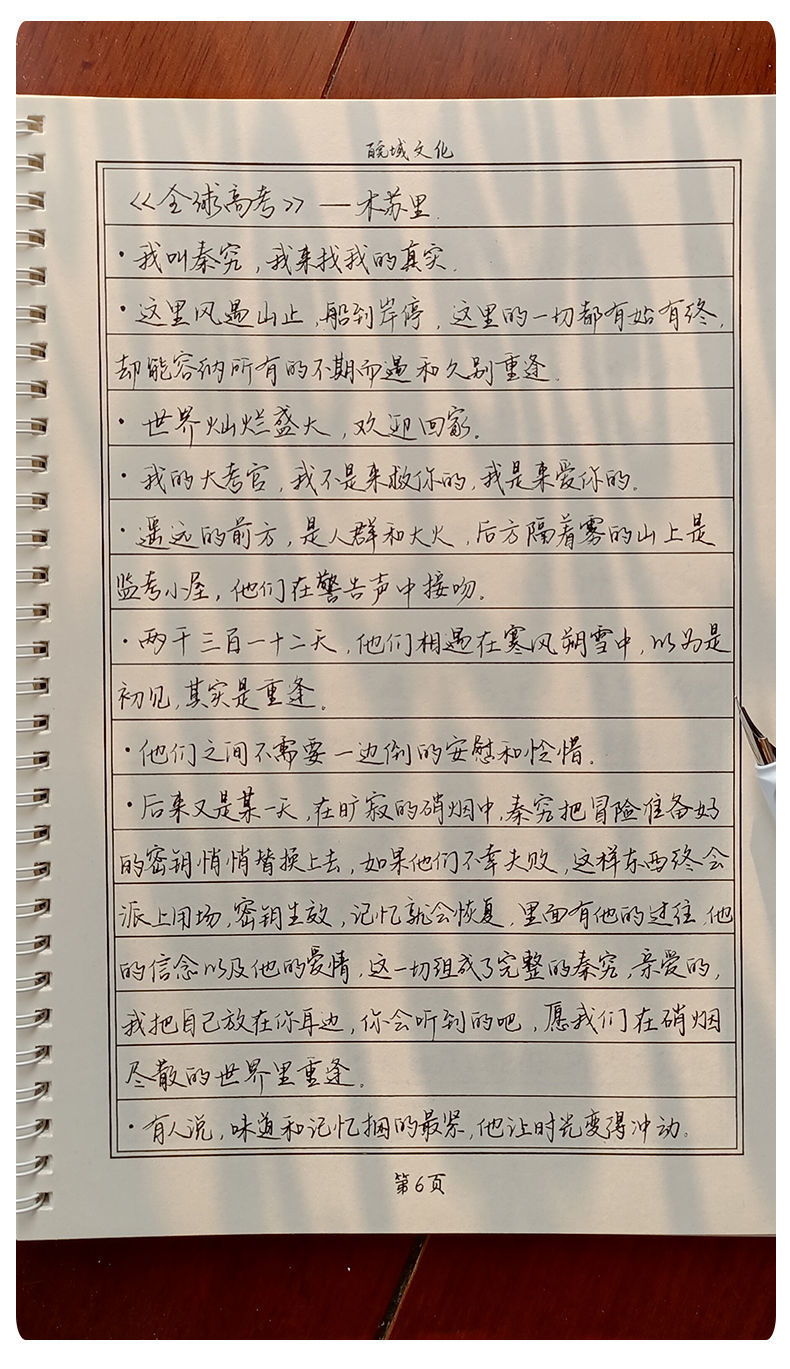 皖域文化
《全球高考》—木苏里.
·我叫秦究，我来找我的真实.
·这里风遇山止，船到岸停，这里的一切都有始有终，
却能容纳所有的不期而遇和久别重逢.
·世界灿烂盛大，欢迎回家。
·我的大考官，我不是来救你的，我是来爱你的。
·遥远的前方，是人群和大火，后方隔着雾的山上是
监考小屋，他们在警告声中接吻。
·两千三百一十二天，他们相遇在寒风朔雪中，以为是
初见，其实是重逢。
·他们之间不需要一边倒的安慰和怜惜.
·后来又是某一天，在旷寂的硝烟中，秦究把冒险准备好
的密钥悄悄替换上去，如果他们不幸失败，这样东西终会
派上用场，密钥生效，记忆就会恢复，里面有他的过往，他
的信念以及他的爱情，这一切组成了完整的秦究，亲爱的，
我把自己放在你耳边，你会听到的吧，愿我们在硝烟
尽散的世界里重逢.
·有人说，味道和记忆捆的最紧，他让时光变得冲动。
第6页